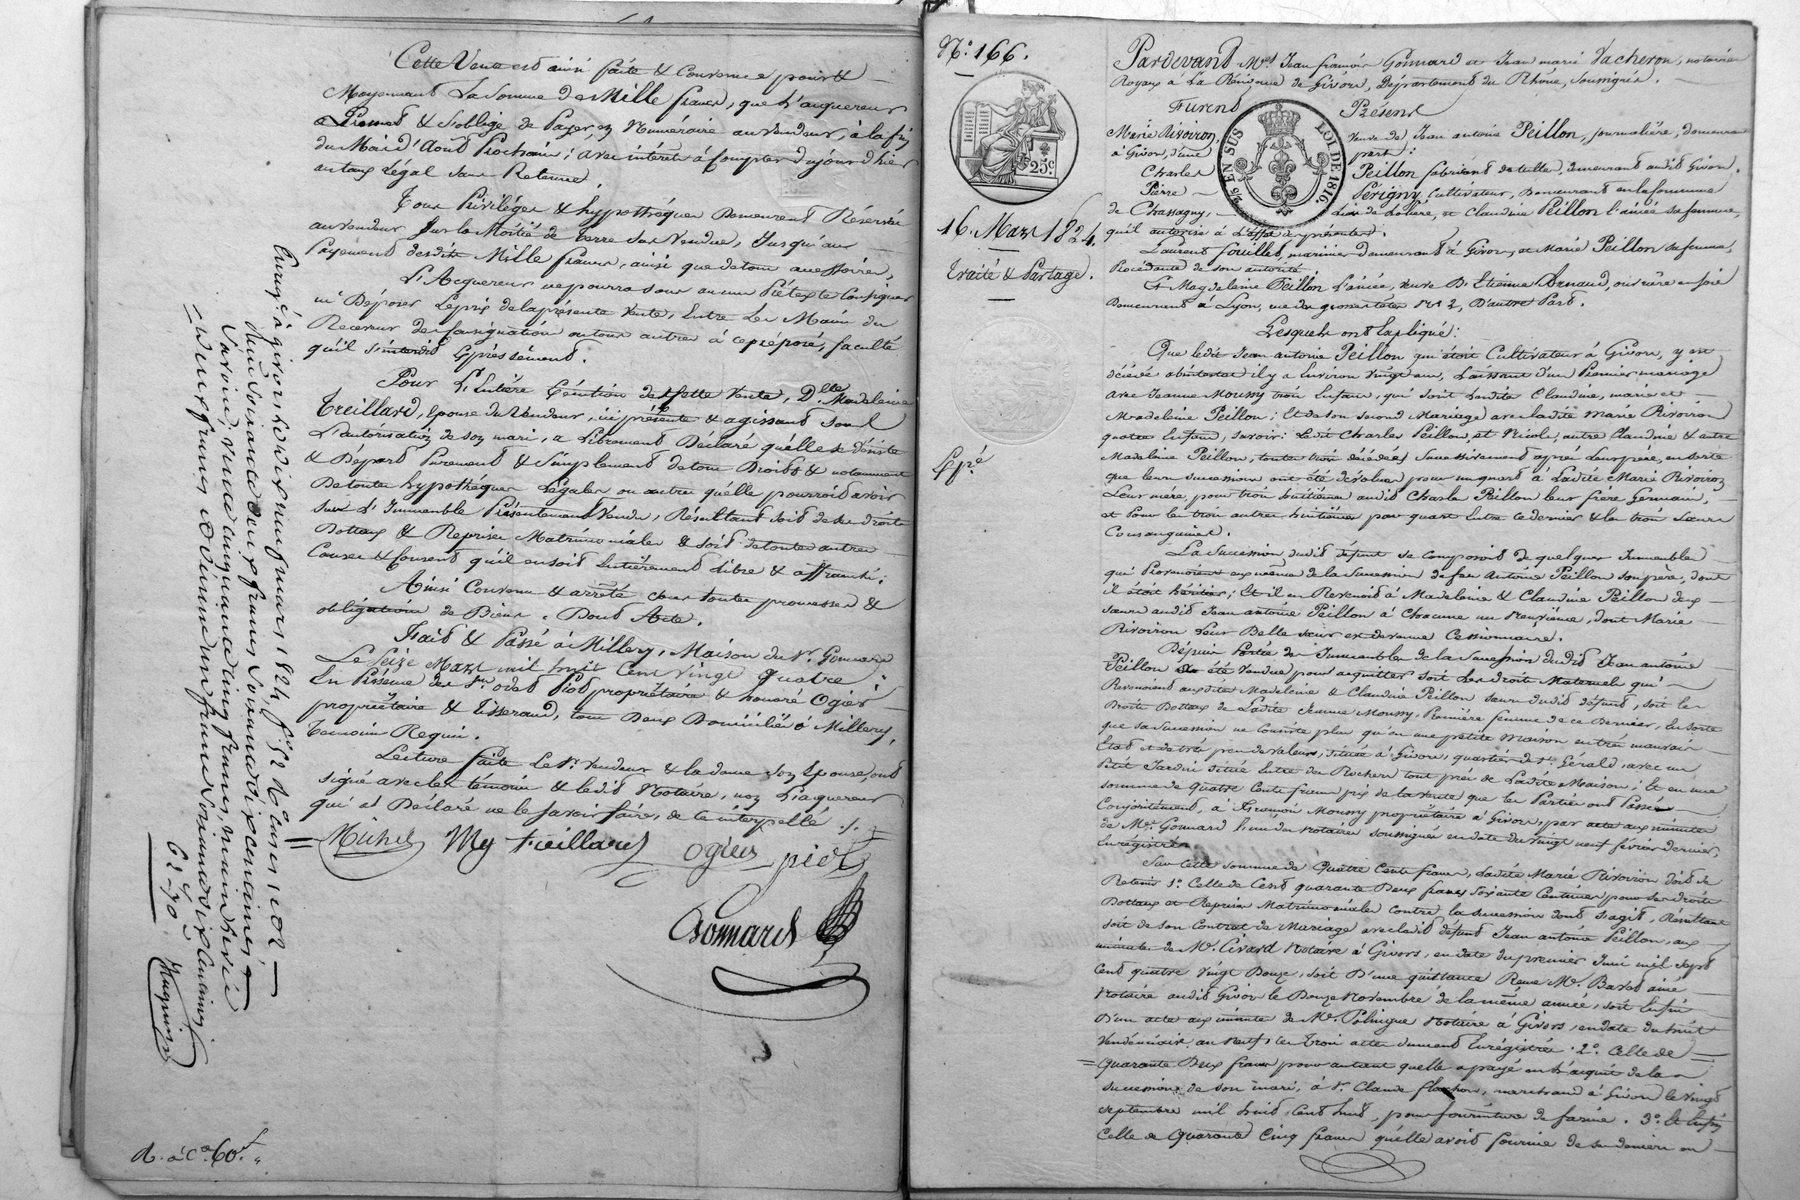 Cette Vente est ainsi faite & Convenue pour &
Moyennant la Somme de Mille francs, que l'acquereur
Promet & S'oblige de Payer, en Numéraire au Vendeur, à la fin
du Mois d'Août Prochain; avec intérêts à Compter d'aujourd'hier
au taux Légal sans Retenue.
Tous Privilèges & hypothèques Demeurent Réservés
au Vendeur sur la Moitié de terre sus Vendue, Jusqu'au
Payement desdits Mille francs, ainsi que de tous accessoires,
L'Acquereur ne pourra sous aucun Prétexte Consigner
ni Déposer le prix de la présente Vente, Entre les Mains du
Receveur des Consignations ou tous autres à ce préposé, faculté
qu'il s'interdit Expressément.
Pour L'Entière Exécution de Cette Vente, D.lle Madeleine
Treillard, Epouse du Vendeur, ici présente & agissant sous
L'autorisation de son mari, a Librement Déclaré qu'elle se désiste
& Départ Purement & Simplement de tous Droits & notamment
De toute hypothèque Légale ou autre qu'elle pourroit avoir
sur L'Immeuble Présentement Vendu, Résultant soit de ses droits
Dottaux & Reprises Matrimoniales & soit de toute autre
Cause & Consent qu'il en soit Entièrement libre & affranchi.
Ainsi Convenu & arrêté sous toutes promesses &
obligations de Biens. Dont Acte.
Fait & Passé à Millery, Maison du Sr. Gonnard
Le Seize Mars mil huit Cent Vingt quatre
En Présence des Srs. odet Piot propriétaire & honoré Ogier
propriétaire & Tisserand, tous Deux Domiciliés à Millery,
Témoins Requis.
Lecture faite le Sr. Vendeur & la dame son Epouse, ont
signé avec les témoins & ledit Notaire, non L'acquereur
qui a Déclaré ne le savoir faire, de ce interpellé ./.
Michel My treillard ogier piot
Gonnard
Enreg.é à givors le dix neuf mars 1824, f.o 52
deux francs Soixante dix centimes
A. à C.a 60.f
N.o 166.
25 c.
2/5 EN SUS LOI DE 1816.
16. Mars 1824.
Traité & Partage.
Exp.é
Pardevant M.es Jean françois Gonnard et Jean marie Vacheron, notaires
Royaux à La Résidence de Givors, Département du Rhône, Soussignés.
Furent Présens
Marie Rivoiron, Veuve de Jean antoine Peillon, journalière, demeurant
à Givors, d'une part;
Charles Peillon fabricant de tuiles, demeurant audit Givors.
Pierre Perigny, Cultivateur, Demeurant en la Commune
de Chassagny, et Claudine Peillon l'ainée sa femme,
qu'il autorise à L'effet des présentes.
Laurent fouillet, marinier demeurant à Givors, et Marie Peillon sa femme,
Procédante de son autorité.
Et Magdeleine Peillon L'ainée, Veuve Dr. Etienne Arnaud, ouvrière en soie
Demeurant à Lyon, rue du gros n.o 2, D'autre Part.
Lesquels ont Expliqué:
Que ledit Jean antoine Peillon qui étoit Cultivateur à Givors, y est
décédé abintestat il y a Environ Vingt ans, Laissant d'un Premier mariage
avec Jeanne Moussy trois Enfans, qui sont Ladite Claudine, marie et
Madeleine Peillon; Et de son second Mariage avec ladite Marie Rivoiron
quatre Enfans, savoir: Ledit Charles Peillon, et Nicole, autre Claudine & autre
Madeleine Peillon, toutes trois décédées Successivement après leur père, en sorte
que leur succession ont été dévolues pour un quart à Ladite Marie Rivoiron
Leur mère, pour trois huitièmes audit Charles Peillon leur frère Germain,
et Pour les trois autres huitièmes par quart Entre ce dernier & les trois Sœurs
Consanguines.
La Succession dudit défunt se Composoit de quelques Immeubles
qui Provenoient eux même de la Succession de feu Antoine Peillon son père, dont
il étoit héritier; Et il en Revenoit à Madeleine & Claudine Peillon deux
sœurs audit Jean antoine Peillon à Chacune un Neuvième, dont Marie
Rivoiron Leur Belle sœur est devenue Cessionnaire.
Depuis Partie des Immeubles de la succession dudit Jean antoine
Peillon a été Vendue pour acquitter soit Les droits Maternels qui
Revenoient auxdites Madeleine & Claudine Peillon sœurs dudit défunt, soit les
Droits Dottaux de Ladite Jeanne Moussy, Première femme de ce Dernier, En sorte
que sa succession ne Consiste plus qu'en une petite Maison en très mauvais
Etat et de très peu de Valeurs, située à Givors, quartier de St. Gérald, avec un
Petit Jardin situé Entre des Rochers tout près de Ladite Maison; Et en une
somme de quatre Cents francs prix de la Vente que les Parties ont Passée
Conjointement, à François Moussy propriétaire à Givors, par acte aux minutes
de M.e Gonnard l'un des Notaires soussignés en date du Vingt neuf février dernier,
Enregistré.
Sur Cette somme de Quatre Cents francs, Ladite Marie Rivoiron doit se
Retenir 1.o Celle de Cent quarante Deux francs Soixante Centimes pour ses droits
Dottaux et Reprises Matrimoniales contre la succession dont s'agit, Résultant
soit de son Contrat de Mariage avec ledit défunt Jean antoine Peillon, aux
minutes de M.e Civard Notaire à Givors, en date du premier Juin mil sept
Cent quatre Vingt Douze, soit D'une quittance Reçue M.e Barot ainé
Notaire audit Givors le Douze Novembre de la même année, soit Enfin
D'un acte aux minutes de M.e Polingue Notaire à Givors, en date du huit
Vendémiaire an neuf; les trois actes dûment Enrégistrés. 2.o Celle de
Quarante Deux francs pour autant qu'elle a payé en l'acquit de la
succession de son mari, à Sr. Claude flachon, marchand à Givors le Vingt
septembre mil huit Cent huit, pour fourniture de farine. 3.o Et Enfin
Celle de Quarante Cinq francs qu'elle avoit fournie de ses deniers en